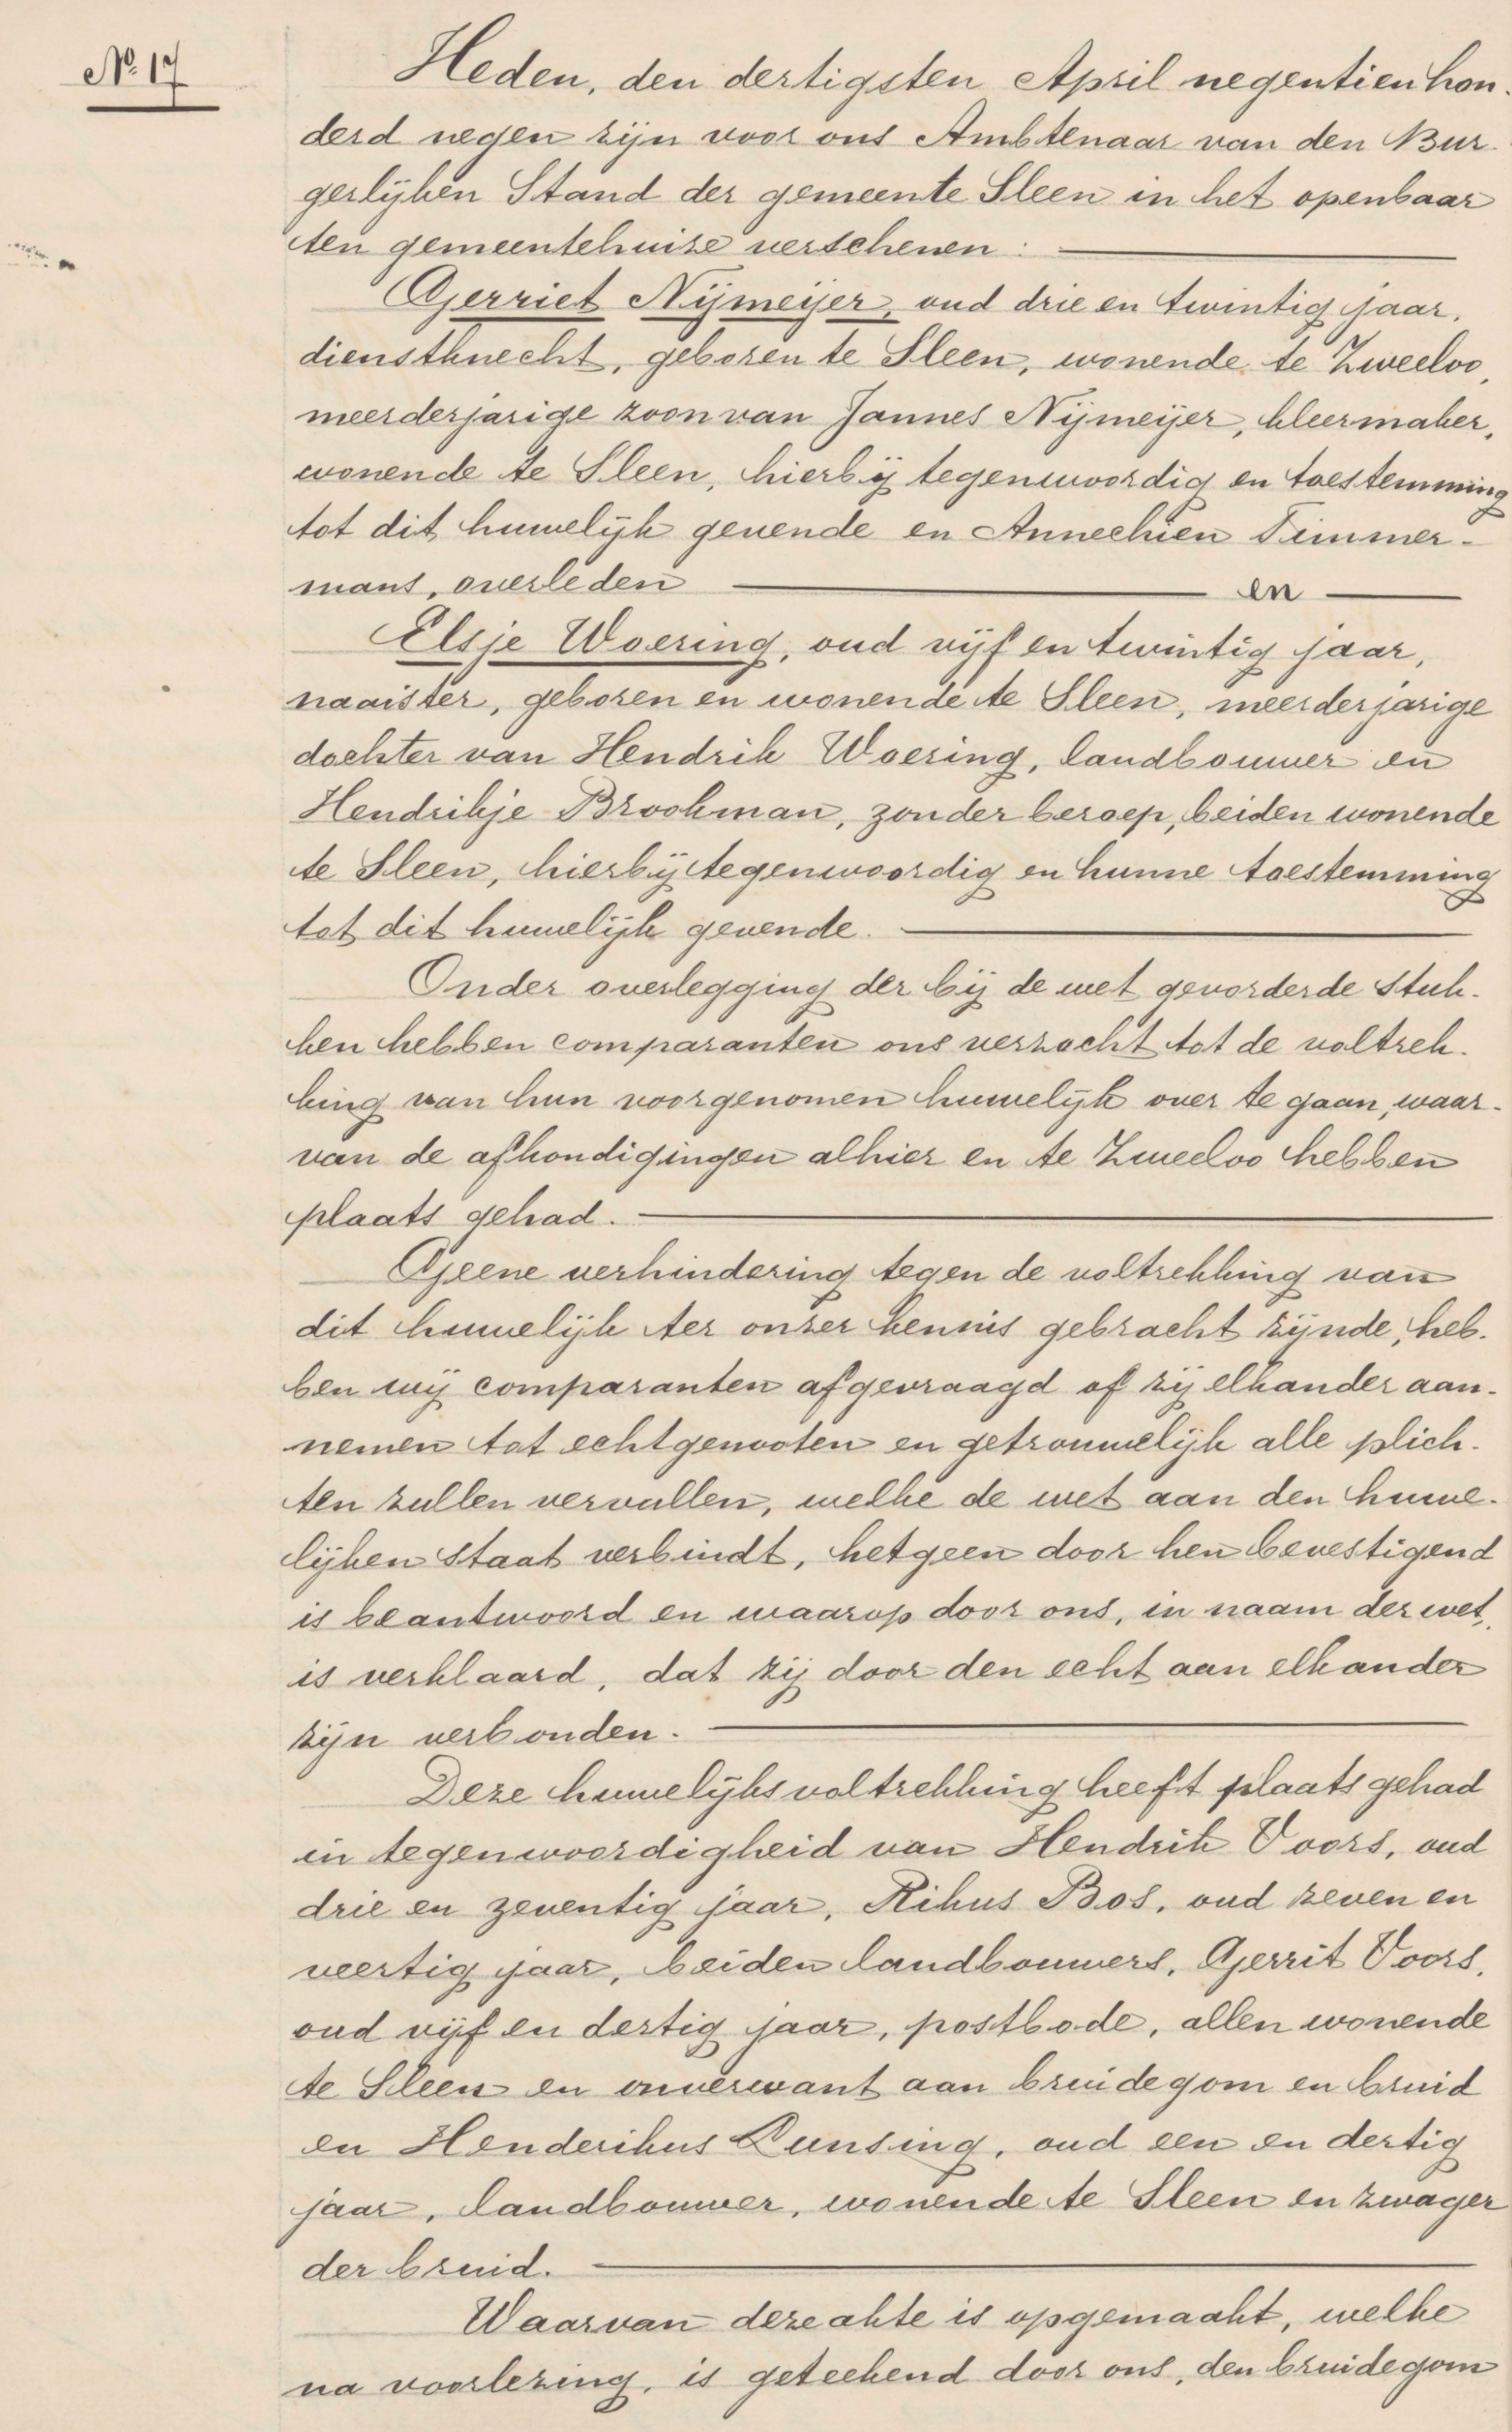 No. 17
Heden, den dertigsten April negentien hon-
derd negen zijn voor ons Ambtenaar van den Bur-
gerlijken Stand der gemeente Sleen in het openbaar
ten gemeentehuize verschenen:
Gerriet Nijmeijer, oud drie en twintig jaar,
dienstknecht, geboren te Sleen, wonende te Zweeloo,
meerderjarige zoon van Jannes Nijmeijer, kleermaker,
wonende te Sleen, hierbij tegenwoordig en toestemming
tot dit huwelijk gevende en Annechien Timmer-
mans, overleden en
Elsje Woering, oud vijf en twintig jaar,
naaister, geboren en wonende te Sleen, meerderjarige
dochter van Hendrik Woering, landbouwer en
Hendrikje Brookman, zonder beroep, beiden wonende
te Sleen, hierbij tegenwoordig en hunne toestemming
tot dit huwelijk gevende.
Onder overlegging der bij de wet gevorderde stuk-
ken hebben comparanten ons verzocht tot de voltrek-
king van hun voorgenomen huwelijk over te gaan, waar-
van de afkondigingen alhier en te Zweeloo hebben
plaats gehad.
Geene verhindering tegen de voltrekking van
dit huwelijk ter onzer kennis gebracht zijnde, heb-
ben wij comparanten afgevraagd of zij elkander aan-
nemen tot echtgenooten en getrouwelijk alle plich-
ten zullen vervullen, welke de wet aan den huwe-
lijken staat verbindt, hetgeen door hen bevestigend
is beantwoord en waarop door ons, in naam der wet,
is verklaard, dat zij door den echt aan elkander
zijn verbonden.
Deze huwelijksvoltrekking heeft plaats gehad
in tegenwoordigheid van Hendrik Voors, oud
drie en zeventig jaar, Rikus Bos, oud zeven en
veertig jaar, beiden landbouwers, Gerrit Voors,
oud vijf en dertig jaar, postbode, allen wonende
te Sleen en onverwant aan bruidegom en bruid
en Henderikus Lunsing, oud een en dertig
jaar, landbouwer, wonende te Sleen en zwager
der bruid.
Waarvan deze akte is opgemaakt, welke
na voorlezing, is geteekend door ons, den bruidegom